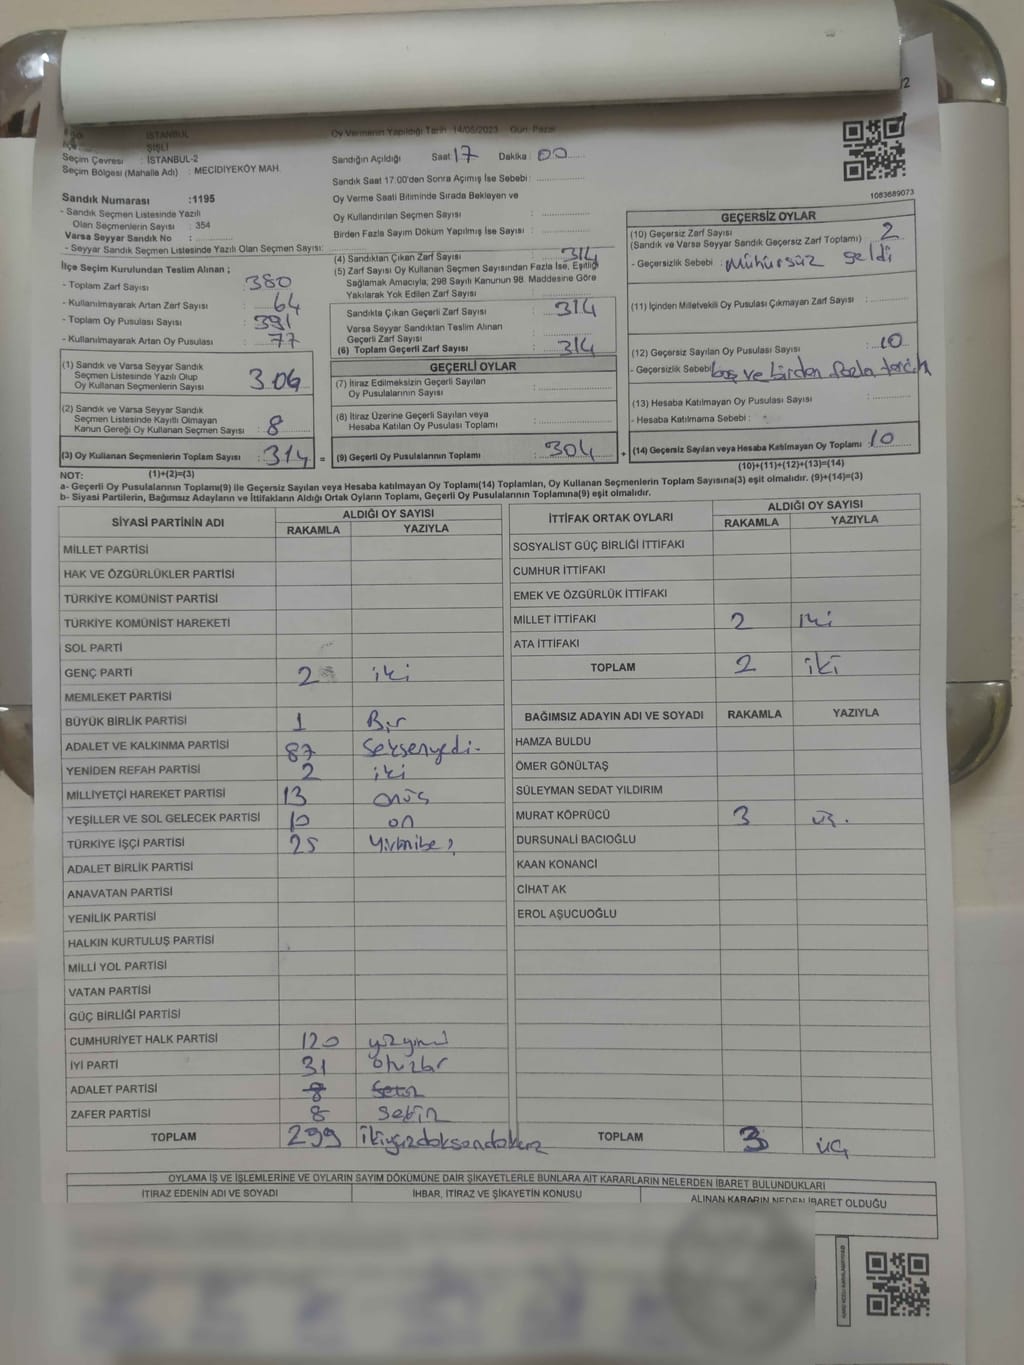 /2
İSTANBUL
ŞİŞLİ
Seçim Çevresi : İSTANBUL-2
Seçim Bölgesi (Mahalle Adı) : MECİDİYEKÖY MAH.
Sandık Numarası :1195
- Sandık Seçmen Listesinde Yazılı
Olan Seçmenlerin Sayısı : 354
Varsa Seyyar Sandık No :
- Seyyar Sandık Seçmen Listesinde Yazılı Olan Seçmen Sayısı:
İlçe Seçim Kurulundan Teslim Alınan ;
- Toplam Zarf Sayısı : 380
- Kullanılmayarak Artan Zarf Sayısı : 64
- Toplam Oy Pusulası Sayısı : 391
- Kullanılmayarak Artan Oy Pusulası : 77
(1) Sandık ve Varsa Seyyar Sandık
Seçmen Listesinde Yazılı Olup
Oy Kullanan Seçmenlerin Sayısı : 306
(2) Sandık ve Varsa Seyyar Sandık
Seçmen Listesinde Kayıtlı Olmayan
Kanun Gereği Oy Kullanan Seçmen Sayısı : 8
(3) Oy Kullanan Seçmenlerin Toplam Sayısı : 314 =
Oy Vermenin Yapıldığı Tarih :14/05/2023 Gün: Pazar
Sandığın Açıldığı Saat: 17 Dakika : 00
Sandık Saat 17:00'den Sonra Açımış İse Sebebi :
Oy Verme Saati Bitiminde Sırada Bekleyen ve
Oy Kullandırılan Seçmen Sayısı :
Birden Fazla Sayım Döküm Yapılmış İse Sayısı :
(4) Sandıktan Çıkan Zarf Sayısı : 314
(5) Zarf Sayısı Oy Kullanan Seçmen Sayısından Fazla İse, Eşitliği
Sağlamak Amacıyla, 298 Sayılı Kanunun 98. Maddesine Göre
Yakılarak Yok Edilen Zarf Sayısı :
Sandıkta Çıkan Geçerli Zarf Sayısı : 314
Varsa Seyyar Sandıktan Teslim Alınan
Geçerli Zarf Sayısı :
(6) Toplam Geçerli Zarf Sayısı : 314
GEÇERLİ OYLAR
(7) İtiraz Edilmeksizin Geçerli Sayılan
Oy Pusulalarının Sayısı :
(8) İtiraz Üzerine Geçerli Sayılan veya
Hesaba Katılan Oy Pusulası Toplamı :
(9) Geçerli Oy Pusulalarının Toplamı : 304 +
1083689073
GEÇERSİZ OYLAR
(10) Geçersiz Zarf Sayısı : 2
(Sandık ve Varsa Seyyar Sandık Geçersiz Zarf Toplamı)
- Geçersizlik Sebebi : Mühürsüz geldi
(11) İçinden Milletvekili Oy Pusulası Çıkmayan Zarf Sayısı :
(12) Geçersiz Sayılan Oy Pusulası Sayısı : 10
- Geçersizlik Sebebi boş ve birden fazla tercih
(13) Hesaba Katılmayan Oy Pusulası Sayısı :
- Hesaba Katılmama Sebebi :
(14) Geçersiz Sayılan veya Hesaba Katılmayan Oy Toplamı : 10
NOT: (1)+(2)=(3) (10)+(11)+(12)+(13)=(14)
a- Geçerli Oy Pusulalarının Toplamı(9) ile Geçersiz Sayılan veya Hesaba Katılmayan Oy Toplamı(14) Toplamları, Oy Kullanan Seçmenlerin Toplam Sayısına(3) eşit olmalıdır. (9)+(14)=(3)
b- Siyasi Partilerin, Bağımsız Adayların ve İttifakların Aldığı Ortak Oyların Toplamı, Geçerli Oy Pusulalarının Toplamına(9) eşit olmalıdır.
SİYASİ PARTİNİN ADI ALDIĞI OY SAYISI
RAKAMLA YAZIYLA
MİLLET PARTİSİ
HAK VE ÖZGÜRLÜKLER PARTİSİ
TÜRKİYE KOMÜNİST PARTİSİ
TÜRKİYE KOMÜNİST HAREKETİ
SOL PARTİ
GENÇ PARTİ 2 iki
MEMLEKET PARTİSİ
BÜYÜK BİRLİK PARTİSİ 1 Bir
ADALET VE KALKINMA PARTİSİ 87 Seksenyedi-
YENİDEN REFAH PARTİSİ 2 iki
MİLLİYETÇİ HAREKET PARTİSİ 13 onüç
YEŞİLLER VE SOL GELECEK PARTİSİ 10 on
TÜRKİYE İŞÇİ PARTİSİ 25 Yirmibeş
ADALET BİRLİK PARTİSİ
ANAVATAN PARTİSİ
YENİLİK PARTİSİ
HALKIN KURTULUŞ PARTİSİ
MİLLİ YOL PARTİSİ
VATAN PARTİSİ
GÜÇ BİRLİĞİ PARTİSİ
CUMHURİYET HALK PARTİSİ 120 yüzyirmi
İYİ PARTİ 31 otuzbir
ADALET PARTİSİ 8 Sekiz
ZAFER PARTİSİ 8 Sekiz
TOPLAM 299 ikiyüzdoksandokuz
İTTİFAK ORTAK OYLARI ALDIĞI OY SAYISI
RAKAMLA YAZIYLA
SOSYALİST GÜÇ BİRLİĞİ İTTİFAKI
CUMHUR İTTİFAKI
EMEK VE ÖZGÜRLÜK İTTİFAKI
MİLLET İTTİFAKI 2 iki
ATA İTTİFAKI
TOPLAM 2 iki
BAĞIMSIZ ADAYIN ADI VE SOYADI RAKAMLA YAZIYLA
HAMZA BULDU
ÖMER GÖNÜLTAŞ
SÜLEYMAN SEDAT YILDIRIM
MURAT KÖPRÜCÜ 3 üç.
DURSUNALİ BACIOĞLU
KAAN KONANCİ
CİHAT AK
EROL AŞUCUOĞLU
TOPLAM 3 üç
OYLAMA İŞ VE İŞLEMLERİNE VE OYLARIN SAYIM DÖKÜMÜNE DAİR ŞİKAYETLERLE BUNLARA AİT KARARLARIN NELERDEN İBARET BULUNDUKLARI
İTİRAZ EDENİN ADI VE SOYADI İHBAR, İTİRAZ VE ŞİKAYETİN KONUSU ALINAN KARARIN NEDEN İBARET OLDUĞU